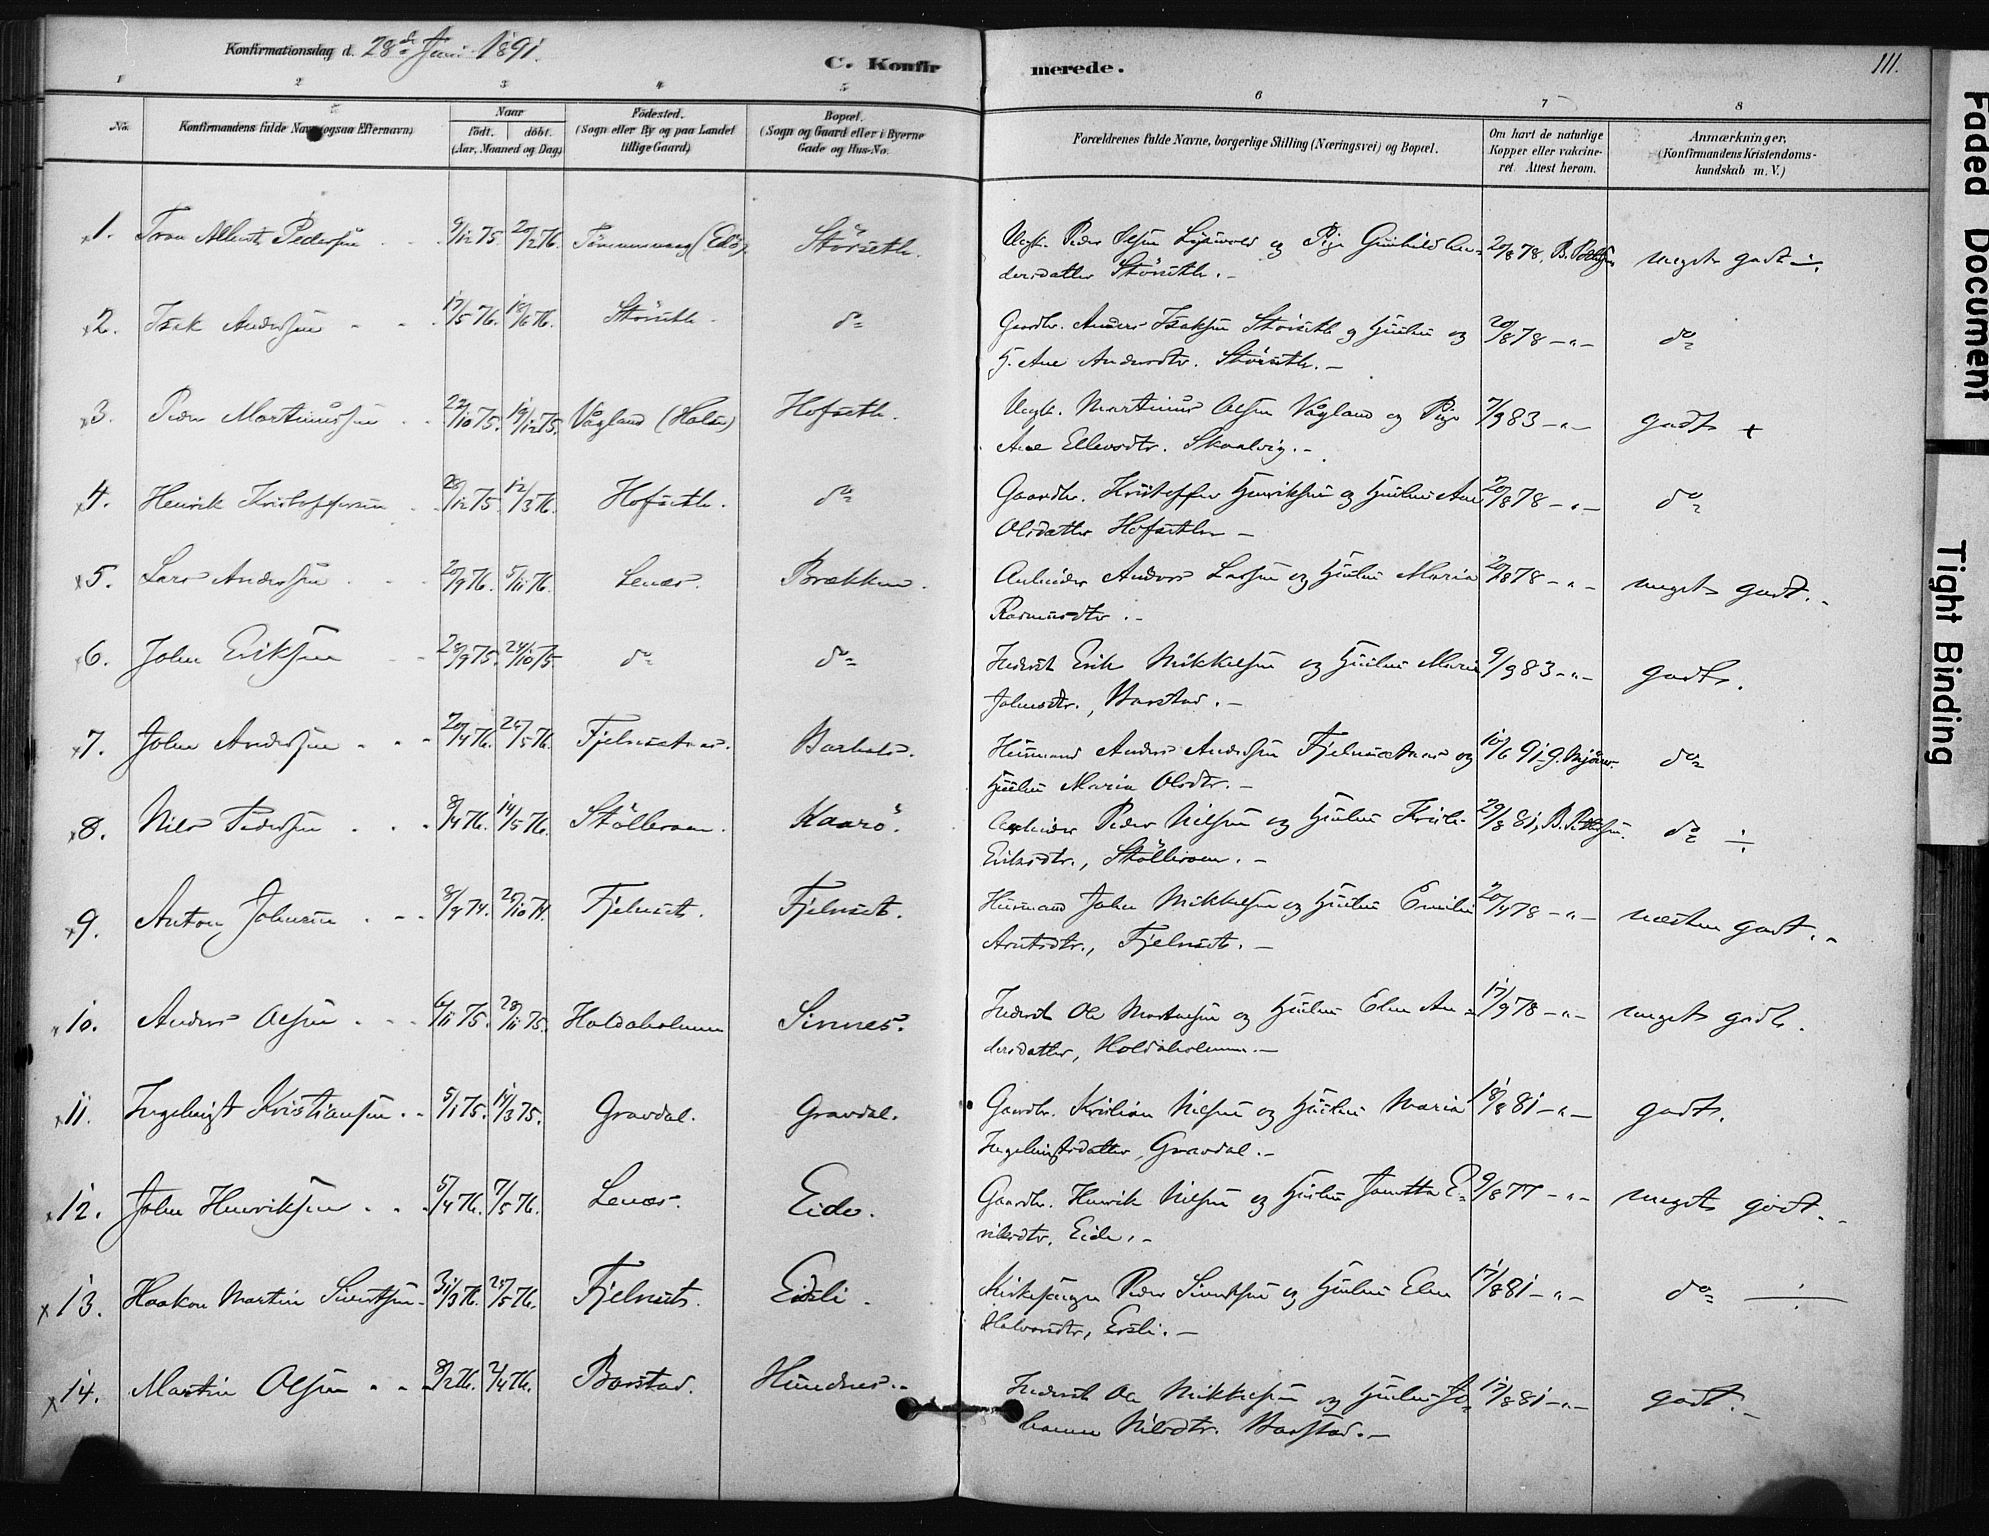 Konfirmationsdag d. 28de Juni 1891.
C. Konfirmerede.
111.
1 2 3 4 5 6 7 8
No.
Konfirmandens fulde Navn (ogsaa Efternavn)
Naar
födt. döbt.
(Aar, Maaned og Dag)
Födested.
(Sogn eller By og paa Landet
tillige Gaard)
Bopæl.
(Sogn og Gaard eller i Byerne
Gade og Hus-No.
Forældrenes fulde Navne, borgerlige Stilling (Næringsvei) og Bopæl.
Om havt de naturlige
Kopper eller vakcine-
ret. Attest herom.
Anmærkninger,
(Konfirmandens Kristendoms-
kundskab m. V.)
x1. Albert Pedersen 9/12 75. 20/2 76. (Edö) Störseth. Ungk. Peder Olsen og Pige Gunhild An=
dersdatter Störseth. 20/8 78. meget godt ÷.
x2. Isak Andersen 17/5 76. 18/6 76. Störseth do Gaardbr. Anders Isaksen Störseth og Hustru og
H. Ane Andersdtr. Störseth. 20/8 78 –"– do
x3. Peder Martinussen 22/10 75. 19/12 75. Vågland (Halse) Hofseth. Ungk. Martinus Olsen Vågland og Pige
Ane Ellevsdtr. Skaalvig. 7/9 83 –"– godt +
x4. Henrik Kristoffersen 28/12 75. 12/3 76. Hofseth. do Gaardbr. Kristoffer Henriksen og Hustru Ane
Olsdatter Hofseth 20/8 78 –"– do
x5. Lars Andersen 20/9 76. 5/11 76. Lenes. Brækken. Arbeider Anders Larsen og Hustru Maria
Rasmusdtr. 20/8 78 –"– meget godt.
x6. John Eriksen 28/9 75. 24/10 75. do do Inderst Erik Mikkelsen og Hustru Maria
Johnsdtr., Barstad. 9/9 83 –"– godt.
x7. John Andersen 20/4 76. Fjelnsetnes. Barhals. Husmand Anders Andersen Fjelnsetnes og
Hustru Maria Olsdtr. 10/6 91 do
x8. Nils Pedersen 8/4 76. 14/5 76. Stölleroen. Kaarö. Arbeider Peder Nilsen og Hustru
Eriksdtr., Stölleroen. 29/8 81, do ÷
x9. Anton Johnsen Fjelnset. Fjelnset. Husmand John Mikkelsen og Hustru Emilie
Arntsdtr., Fjelnset. næsten godt.
x10. Anders Olsen 6/11 75. 28/11 75. Holdaholmen Sinnes. Inderst Ole og Hustru Elen An=
dersdatter, Holdaholmen. 17/9 78 –"– meget godt.
x11. Ingebrigt Kristiansen 5/1 75. 14/3 75. Gravdal. Gravdal. Gaardbr. Kristian Nilsen og Hustru Maria
Ingebrigtsdatter, Gravdal. 18/8 81 –"– godt.
x12. John Henriksen 5/4 76. 7/5 76. Lenes. Eide. Gaardbr. Henrik Nilsen og Hustru E=
riksdtr. Eide. 9/8 77 –"– meget godt.
x13. Haakon Martin Sivertsen 31/3 76. 25/5 76. Fjelnset. Eidsli. Kirkesanger Peder Sivertsen og Hustru Elen
Halvorsdtr, Eidsli. 17/8 81 –"– do ÷
x14. Martin Olsen 8/2 76. 2/4 76. Barstad. Hundnes. Inderst Ole Mikkelsen og Hustru Jo=
hanna Nilsdtr. Barstad. 17/8 81 –"– godt.
Faded Document
Tight Binding